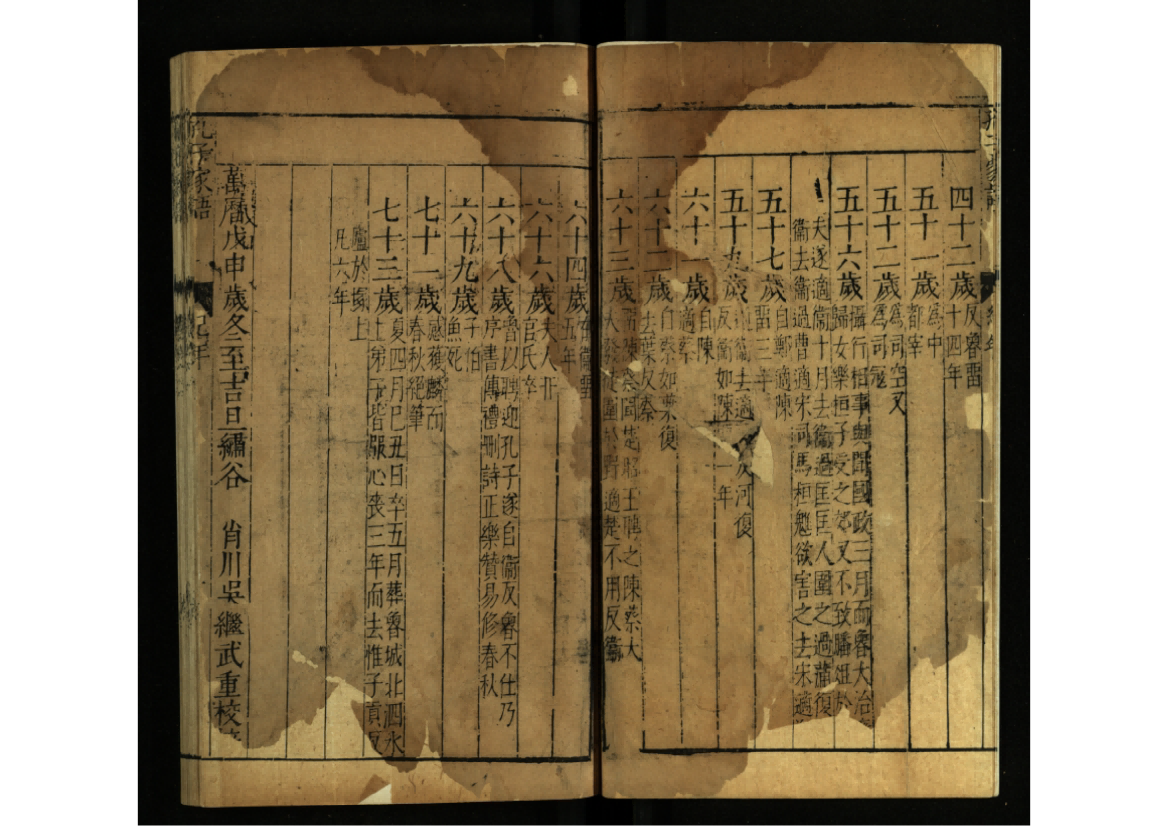 四十二歲反魯畱十四年
五十一歲為中都宰
五十二歲為司空又為司寇
五十六歲攝行相事與聞國政三月而魯大治歸女樂桓子受之郊又不致膰俎於
夫遂適衞十月去衞過匡匡人圍之過蒲復
衞去衞過曹適宋司馬桓魋欲害之去宋適
五十七歲自鄭適陳畱三年
五十九歲適衞去適反河復反衞如陳一年
六十一歲自陳適蔡
六十二歲自蔡如葉復去葉反蔡
六十三歲畱陳蔡間楚昭王聘之陳蔡大夫發徒圍於野適楚不用反衞
六十四歲在衞畱五年
六十六歲夫人亓官氏卒
六十八歲魯以聘迎孔子遂自衞反魯不仕乃序書傳禮刪詩正樂贊易修春秋
六十九歲子伯魚死
七十一歲感獲麟而春秋絕筆
七十三歲夏四月巳丑日卒五月葬魯城北泗水上弟子皆服心喪三年而去惟子貢反
廬於塚上
凡六年
萬曆戊申歲冬至吉旦繡谷 肖川吳繼武重校
孔子家語
紀年